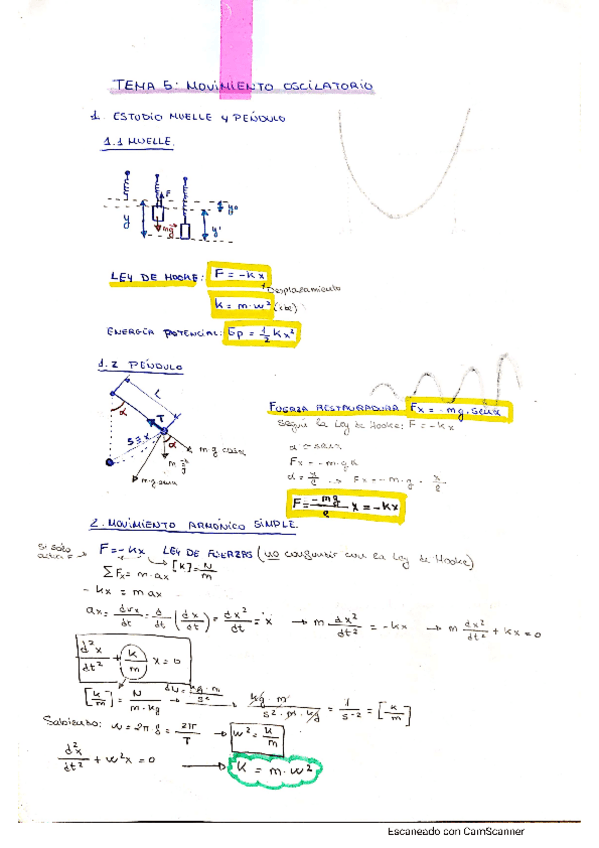 TEMA 5: MOVIMIENTO OSCILATORIO
1. ESTUDIO MUELLE Y PÉNDULO
1.1 MUELLE.
F
y
mg
y0
y'
LEY DE HOOKE: F = -kx
Desplazamiento
k = m·w² (cte)
ENERGÍA POTENCIAL: Ep = 1/2 kx²
1.2 PÉNDULO
L
α
T
S≈x
α
m·g cosα
m g
m·g senα
FUERZA RESTAURADORA Fx = -mg·senα
según la Ley de Hooke: F = -kx
α ≈ senα
Fx = -m·gα
α = x/l → Fx = -m·g · x/l
F = -mg/l x = -kx
2. MOVIMIENTO ARMÓNICO SIMPLE.
Si solo F = -kx LEY DE FUERZAS (no confundir con la Ley de Hooke)
[K] = N/m
ΣFx = m·ax
-kx = max
ax = dvx/dt = d/dt (dx/dt) = dx²/dt = x → m dx²/dt² = -kx → m dx²/dt² + kx = 0
d²x/dt² + k/m x = 0
[k/m] = N/m·kg → kg·m/s²·m·kg = 1/s-2 = [k/m]
Sabiendo: w = 2π f = 2π/T → w² = k/m
d²x/dt² + w²x = 0 → K = m·w²
Escaneado con CamScanner